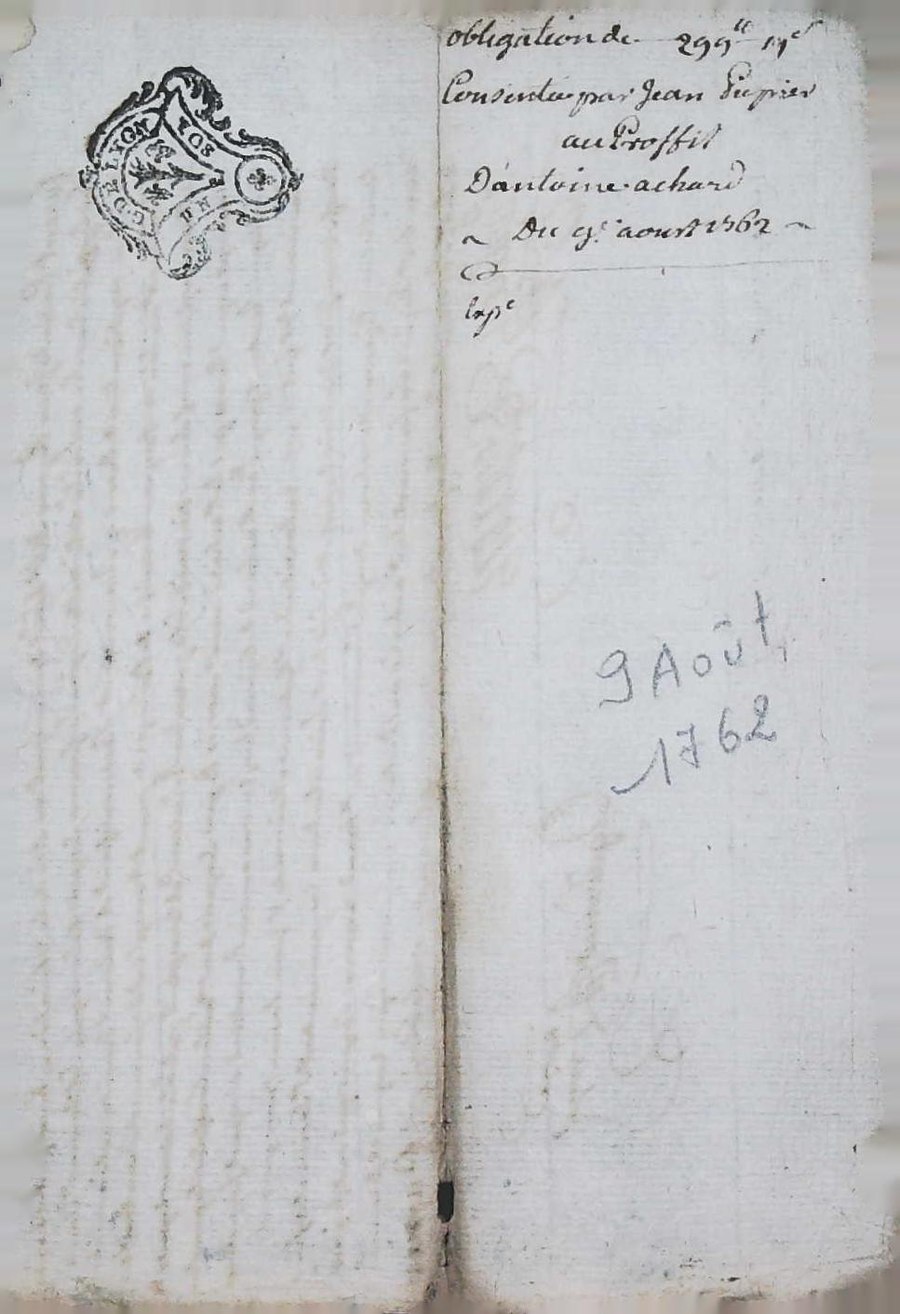 G. DE LYON
UN SOL
obligation de 299ᵗᵗ 17ˢ
Consentie par Jean
au Proffit
D'antoine achard
Du 9ᵉ aoust 1762
Expᵉ
9 Août
1762